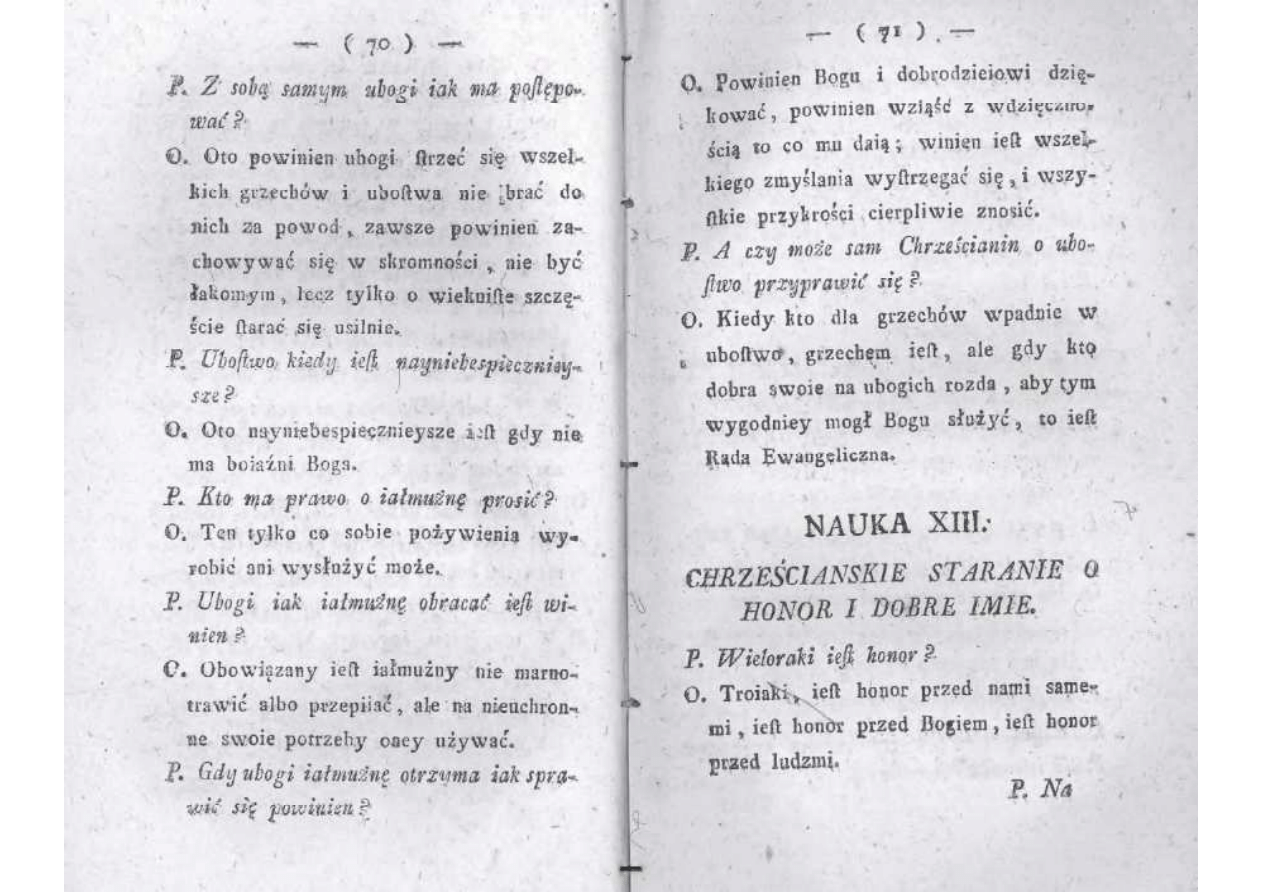 — ( 70 ) —
P. Z sobą samym ubogi iak ma poſtępo-
wać ?
O. Oto powinien ubogi ſtrzec się wszel-
kich grzechów i uboſtwa nie brać do
nich za powod, zawsze powinien za-
chowywać się w skromności, nie być
łakomym, lecz tylko o wiekuiſte szczę-
ście ſtarać się usilnie.
P. Uboſtwo kiedy ieſt nayniebespieczniey-
sze ?
O. Oto nayniebespiecznieysze ieſt gdy nie
ma boiaźni Boga.
P. Kto ma prawo o iałmużnę prosić ?
O. Ten tylko co sobie pożywienia wy-
robić ani wysłużyć może.
P. Ubogi iak iałmużnę obracać ieſt wi-
nien ?
O. Obowiązany ieſt iałmużny nie marno-
trawić albo przepiiać, ale na nieuchron-
ne swoie potrzeby oney używać.
P. Gdy ubogi iałmużnę otrzyma iak spra-
wić się powinien ?
— ( 71 ) —
O. Powinien Bogu i dobrodzieiowi dzię-
kować, powinien wziąść z wdzięczno-
ścią to co mu daią; winien ieſt wszel-
kiego zmyślania wyſtrzegać się, i wszy-
ſtkie przykrości cierpliwie znosić.
P. A czy może sam Chrześcianin o ubo-
ſtwo przyprawić się ?
O. Kiedy kto dla grzechów wpadnie w
uboſtwo, grzechem ieſt, ale gdy kto
dobra swoie na ubogich rozda, aby tym
wygodniey mogł Bogu służyć, to ieſt
Rada Ewangeliczna.
NAUKA XIII.
CHRZEŚCIANSKIE STARANIE O
HONOR I DOBRE IMIE.
P. Wieloraki ieſt honor ?
O. Troiaki, ieſt honor przed nami same-
mi, ieſt honor przed Bogiem, ieſt honor
przed ludzmi.
P. Na